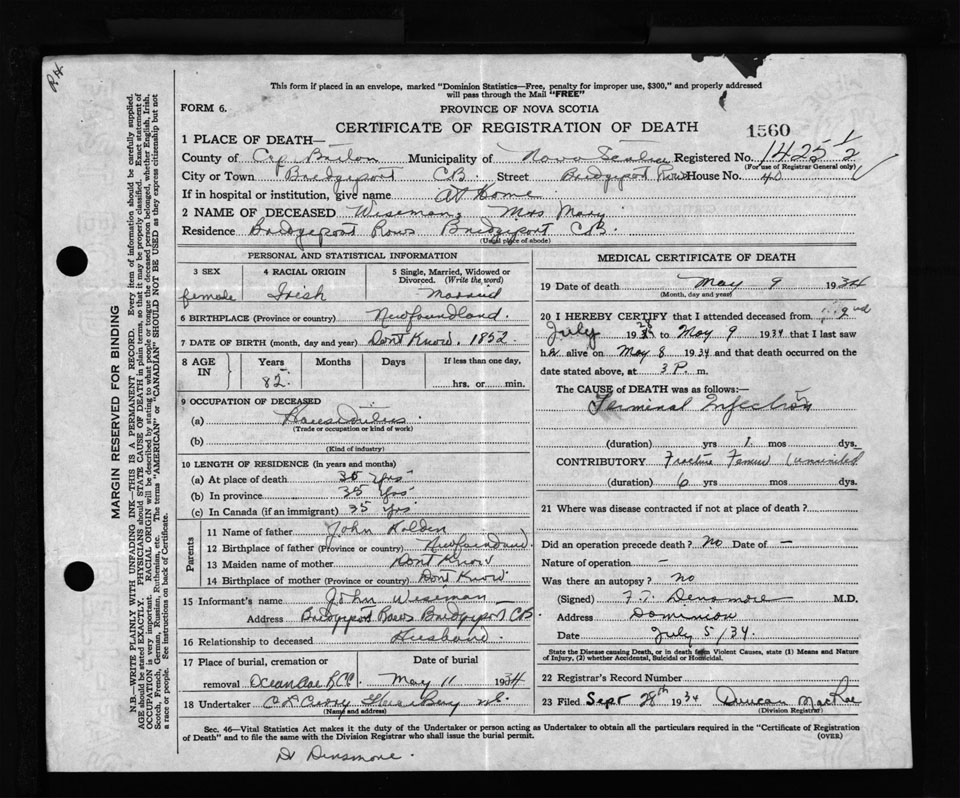 R H
This form if placed in an envelope, marked "Dominion Statistics—Free, penalty for improper use, $300," and properly addressed
will pass through the Mail "FREE"
FORM 6.
PROVINCE OF NOVA SCOTIA
CERTIFICATE OF REGISTRATION OF DEATH 1560
1 PLACE OF DEATH—
County of Cap Breton Municipality of Nova Scotia Registered No. 1425 1/2
(For use of Registrar General only)
City or Town Bridgeport CB. Street Bridgeport Rows House No. 40
If in hospital or institution, give name at Home
2 NAME OF DECEASED Wiseman, Mrs Mary
Residence Bridgeport Rows Bridgeport CB.
(Usual place of abode)
PERSONAL AND STATISTICAL INFORMATION
3 SEX 4 RACIAL ORIGIN 5 Single, Married, Widowed or Divorced. (Write the word)
female Irish Married
6 BIRTHPLACE (Province or country) Newfoundland.
7 DATE OF BIRTH (month, day and year) Dont Know. 1852
8 AGE IN Years Months Days If less than one day,
82. hrs. or min.
9 OCCUPATION OF DECEASED
(a)
(Trade or occupation or kind of work)
(b)
(Kind of industry)
10 LENGTH OF RESIDENCE (in years and months)
(a) At place of death 35 Yrs
(b) In province 35 Yrs
(c) In Canada (if an immigrant) 35 Yrs
Parents
11 Name of father John Holden
12 Birthplace of father (Province or country)
13 Maiden name of mother Dont Know
14 Birthplace of mother (Province or country) Dont Know
15 Informant's name John Wiseman
Address Bridgeport Rows Bridgeport CB
16 Relationship to deceased Husband.
17 Place of burial, cremation or Date of burial
removal May 11 1934
18 Undertaker
(Name and address)
MEDICAL CERTIFICATE OF DEATH
19 Date of death May 9 1934
(Month, day and year)
20 I HEREBY CERTIFY that I attended deceased from 2nd
July 19 to May 9 1934 that I last saw
h alive on May 8 1934 and that death occurred on the
date stated above, at 3 P. m.
The CAUSE of DEATH was as follows:—
Terminal Infection
(duration) yrs 1 mos dys.
CONTRIBUTORY Fracture Femur (ununited
(duration) 6 yrs mos dys.
21 Where was disease contracted if not at place of death?
Did an operation precede death? no Date of —
Nature of operation —
Was there an autopsy? no
(Signed) Densmore M.D.
Address Dominion
Date July 5/34.
State the Disease causing Death, or in death from Violent Causes, state (1) Means and Nature
of Injury, (2) whether Accidental, Suicidal or Homicidal.
22 Registrar's Record Number
23 Filed Sept 28th 1934 Duncan MacRae
(Division Registrar)
Sec. 46—Vital Statistics Act makes it the duty of the Undertaker or person acting as Undertaker to obtain all the particulars required in the "Certificate of Registration
of Death" and to file the same with the Division Registrar who shall issue the burial permit.
(OVER)
Dr Dinsmore.
MARGIN RESERVED FOR BINDING
N.B.—WRITE PLAINLY WITH UNFADING INK—THIS IS A PERMANENT RECORD. Every item of information should be carefully supplied.
AGE should be stated EXACTLY. PHYSICIANS should STATE CAUSE OF DEATH in plain terms, so that it may be properly classified. Exact statement of
OCCUPATION is very important. RACIAL ORIGIN will be described by stating to what people or tongue the deceased person belonged, whether English, Irish,
Scotch, French, German, Russian, Ruthenian, etc. The terms "AMERICAN" or "CANADIAN" SHOULD NOT BE USED as they express citizenship but not
a race or people. See instructions on back of Certificate.